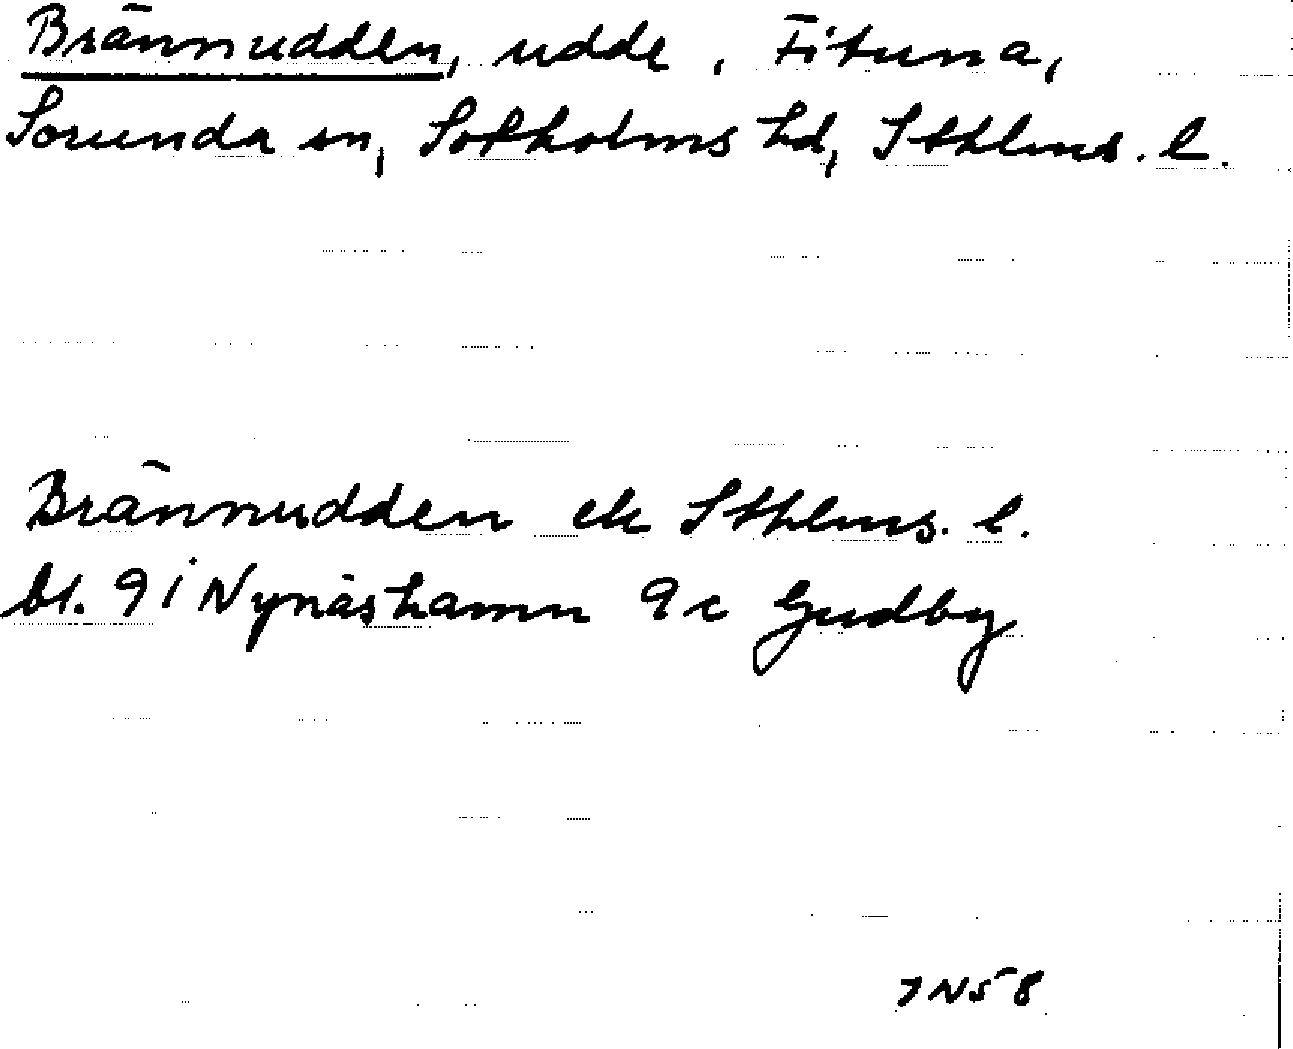 Brännudden, udde, Fituna,
Sorunda sn, Sotholms hd, Sthlms. l.
Brännudden ek Sthlms. l.
bl. 9 i Nynäshamn 9 c Gudby
7N58